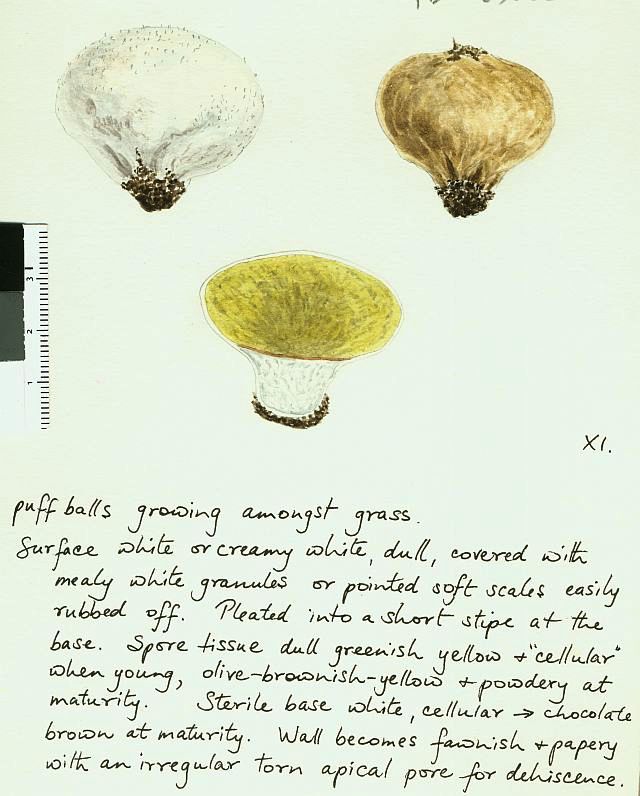 3
2
1
X1.
puff balls growing amongst grass.
Surface white or creamy white, dull, covered with
mealy white granules or pointed soft scales easily
rubbed off. Pleated into a short stipe at the
base. Spore tissue dull greenish yellow + "cellular"
when young, olive-brownish-yellow + powdery at
maturity. Sterile base white, cellular → chocolate
brown at maturity. Wall becomes fawnish + papery
with an irregular torn apical pore for dehiscence.